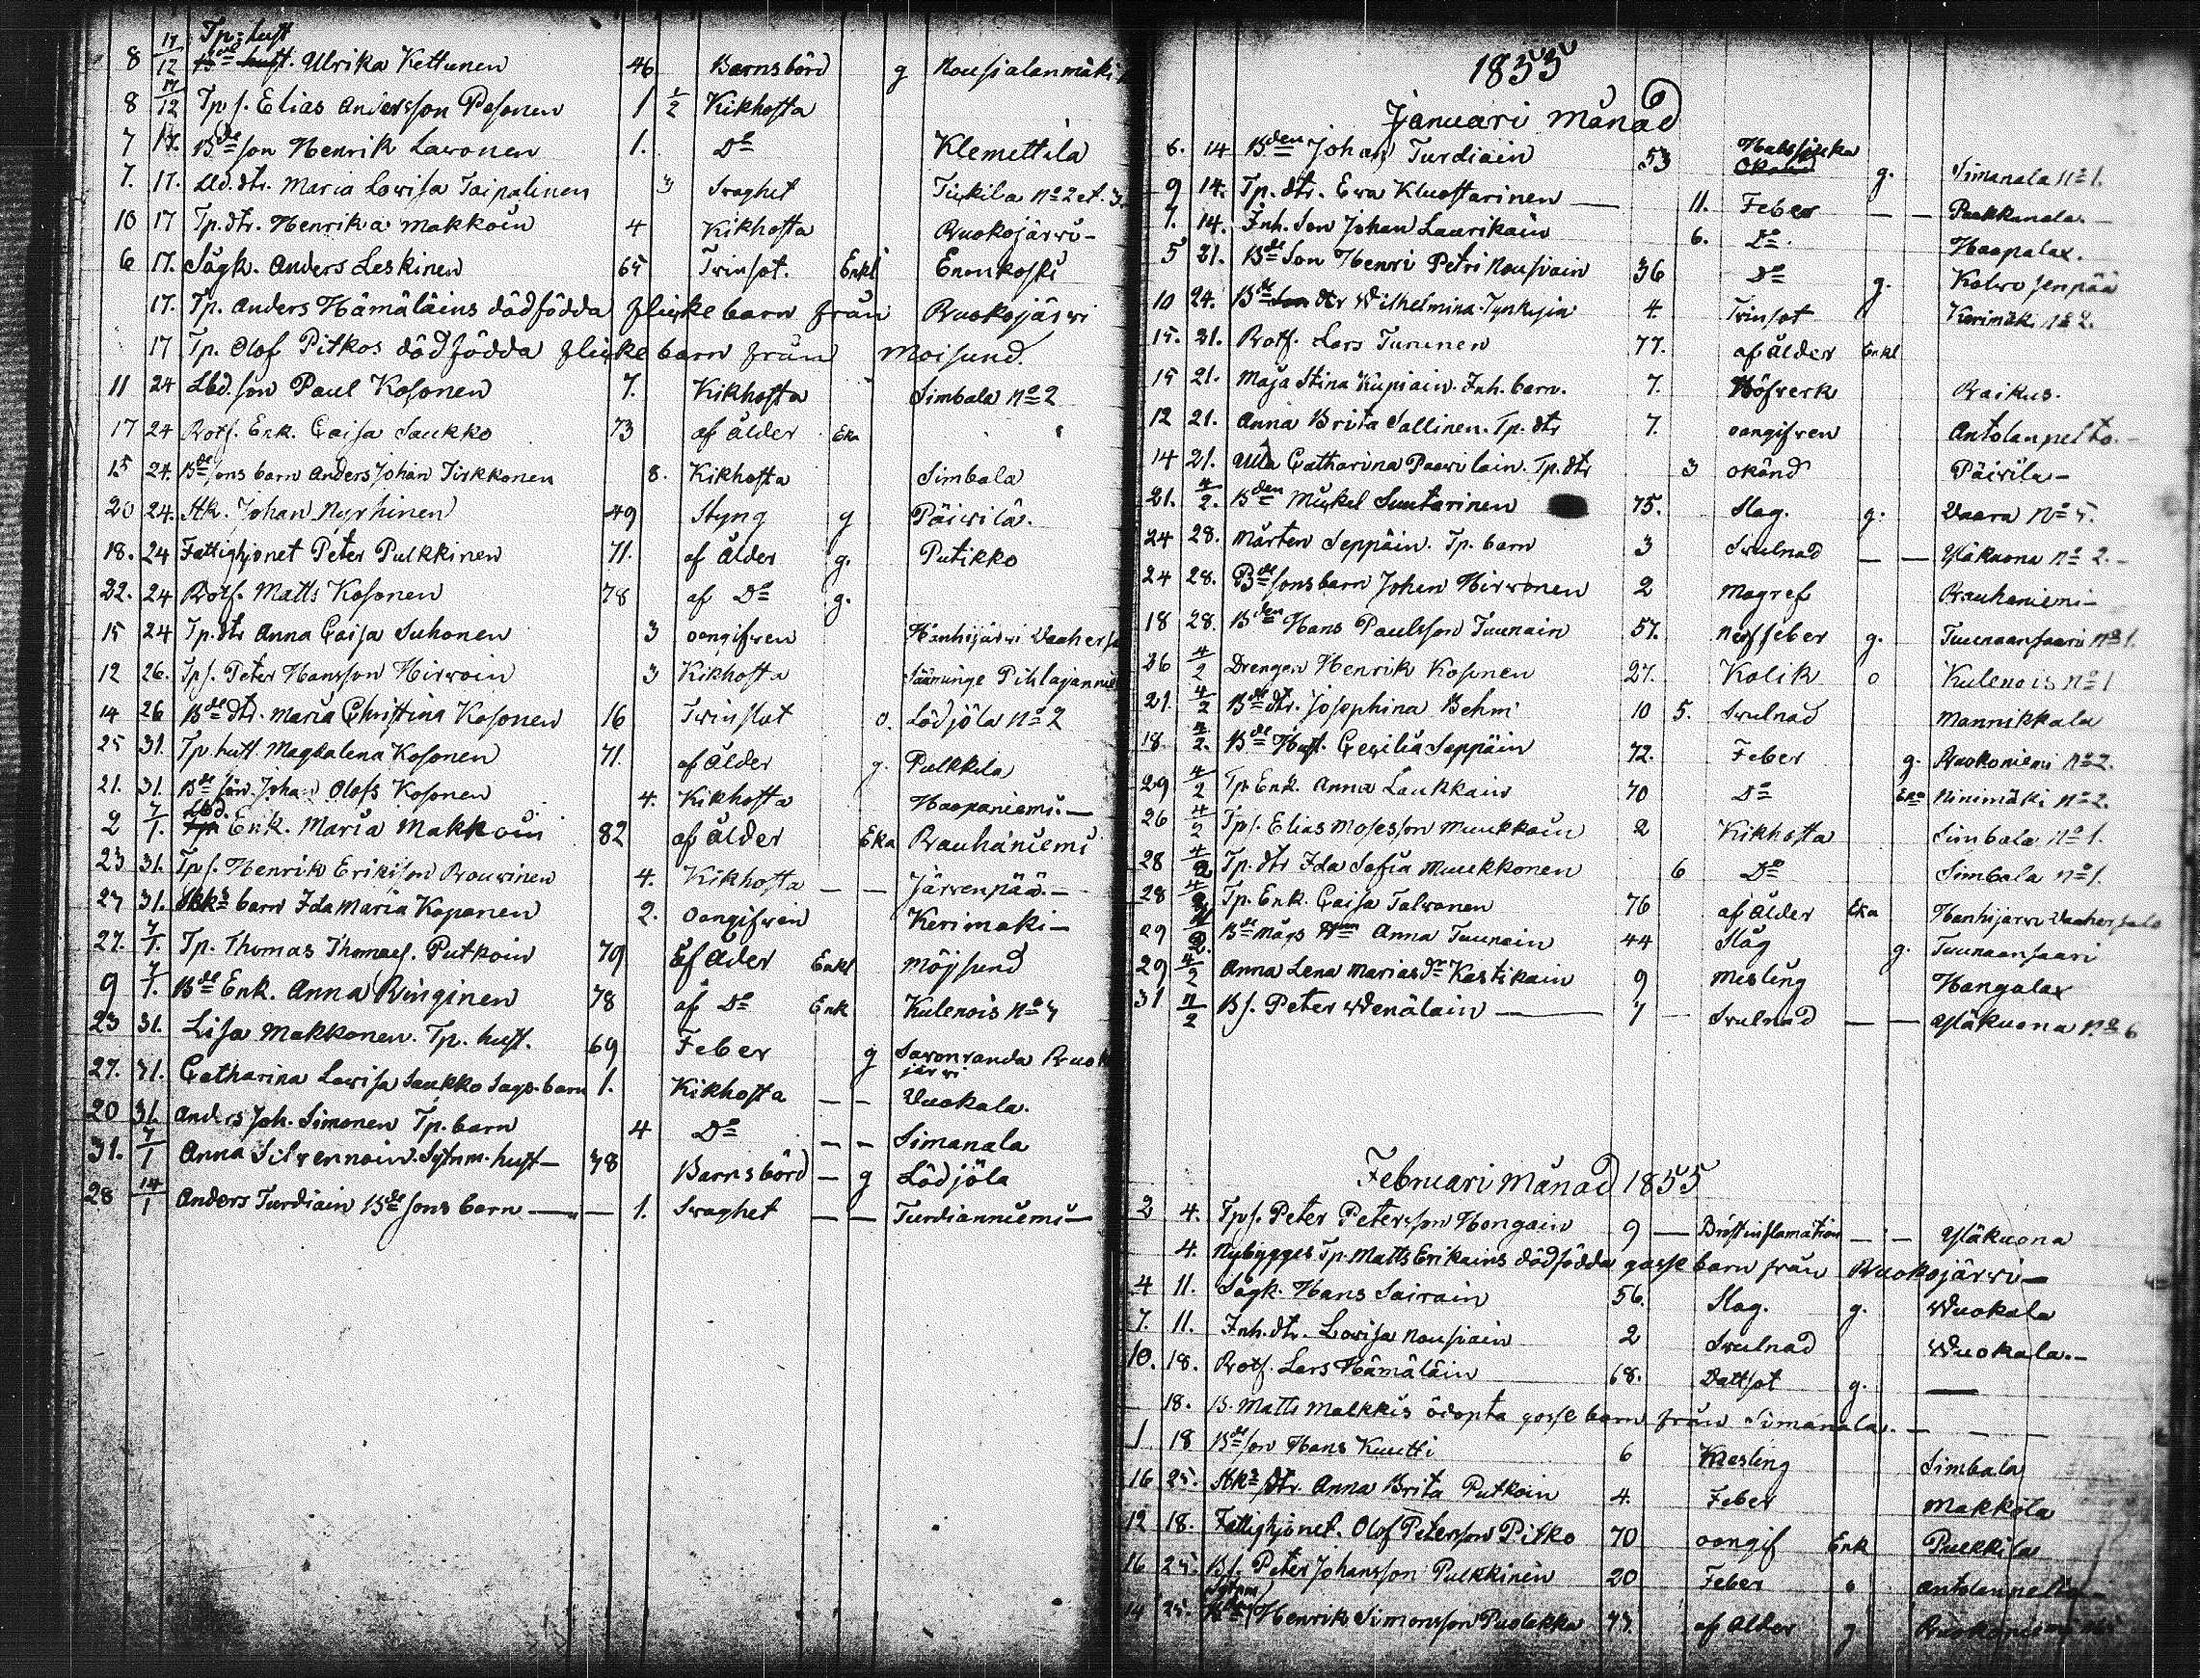 Tp: hust
8 17/12 Bde hust. Ulrika Kettunen 46 Barnsbörd g Nousialanmäki
8 17/12 Tp s. Elias Andersson Pesonen 1 1/2 Kikhosta
7 17. Bde son Henrik Lavonen 1. Do Klemettila
7. 17. Lld. dtr. Maria Lovisa Taipalinen 3 Svaghet Tirkila No 2 et. 3.
10 17 Tp. dtr. Henrika Makkoin 4 Kikhosta Ruokojärvi -
6 17. Sågk. Anders Leskinen 65 Tvinsot. Enkl Enonkoski
17. Tp. Anders Hämäläins dödfödda flicke barn från Ruokojärvi
17 Tp. Olof Pitkos dödfödda flicke barn från Moisund
11 24 Lbd. son Paul Kosonen 7. Kikhosta Simbala No 2
17 24 Rotf. Enk. Caisa Saukko 73 af ålder Eka
15 24. Bde sons barn Anders Johan Tirkkonen 8. Kikhosta Simbala
20 24. Stk. Johan Nyrhinen 49 Styng g Päivilä.
18. 24 Fattighjonet Peter Pulkkinen 71. af ålder g. Putikko
22. 24 Rotf. Matts Kosonen 78 af Do g.
15 24 Tp. dtr Anna Caisa Suhonen 3 oangifven Hanhijärvi Vaahersa
12 26. Tp s. Peter Hansson Hirvoin 3 Kikhosta Säminge Pihlajannie
14 26 Bde dtr. Maria Christina Kosonen 16 Tvinsot o. Lödjöla No 2
25 31. Tp hust. Magdalena Kosonen 71. af ålder g. Pulkkila
21. 31. Bde son Johan Olofs Kosonen 4. Kikhosta Haapaniemi. —
2 7/1. Lbd. Enk. Maria Makkoin 82 af ålder Eka Rauhaniemi
23 31. Tp s. Henrik Erikison Rouvinen 4. Kikhosta — — Järvenpää. —
27 31. Stks barn Ida Maria Kaponen 2. oangifven Kerimaki —
27. 7/1. Tp. Thomas Thomaes. Putkoin 79 Ef Ålder Enkl Möjsund
9 7/1. Bde Enk. Anna Ringinen 78 af Do Enk Kulenois No 4
23 31. Lisa Makkonen. Tp. hust. 69 Feber g Savonranda Ruok
järvi
27. 31. Catharina Lovisa Saukko Sags. barn 1. Kikhosta — — Vuokala.
20 31. Anders Joh. Simonen Tp. barn 4 Do — — Simanala
31. 7/1 Anna Silvennoin. Sytnm. hust — 38 Barnsbörd — g Lödjöla
28 14/1 Anders Turdiain Bde sons barn — — 1. Svaghet — — Turdianniemi —
1855
Januari månad
6. 14 Bden Johan Turdiain 53 Halssjuka g. Simanala No 1.
9 14. Tp. dtr. Eva Kluostarinen — 11. Feber — — Pukkanala —
7. 14. Inh. Son Johan Laurikain 6. Do Haapalax.
5 21. Bde Son Henri Petri Nousiain 36 Do g. Kolvosenpää
10 24. Bde dtr Wilhelmina Tynkyin 4. Tvinsot Kerimäki No 2.
15. 21. Rotf. Lars Turunen 77. af ålder Enkl
15 21. Maja Stina Kupiain. Inh. barn. 7. Höfverk Raikus.
12 21. Anna Brita Sallinen. Tp. dtr 7. oangifven Antolanpelto. —
14 21. Ulla Catharina Paavilain. Tp. dtr 3 okänd Päivilä —
21. 4/2. Bden Mickel Suutarinen 75. Slag. g. Vaara No 5.
24 28. Mårten Seppäin. Tp. barn 3 Svulnad — — Yläkuona No 2. -
24 28. Bde sons barn Johan Hirvonen 2 Magref Rauhaniemi —
18 28. Bden Hans Paulsson Tuunain 57. Nerffeber g. Tuunaansaari No 1.
26 4/2 Drengen Henrik Kosonen 27. Kolik o Kulenois No 1
21. 4/2 Bde dtr. Josephina Behm 10 5. Svulnad Mannikkala
18. 4/2. Bde Hust. Cecilia Seppäin 72. Feber g. Ruokoniemi No 2.
29 4/2 Tp Enk. Anna Laukkain 70 Do Eka Ninimäki No 2.
26 4/2 Tp s. Elias Mosesson Muukkoin 2 Kikhosta Simbala No 1.
28 4/2 Tp. dtr Ida Sofia Muukkonen 6 Do Simbala No 1.
28 4/2 Tp. Enk. Caisa Talvonen 76 af ålder Eka Hanhijarvi Vaahersalo
29 4/2. Bde Mågs Anna Tuunain 44 Slag g. Tuunaansaari
29 4/2 Anna Lena Marias dr Kastikain 9 Mesling Hangalax
31 11/2 Bs. Peter Wenäläin — 7 — Svulnad — — Yläkuona No 6
Februari månad 1855
2 4. Tp s. Peter Petersson Hongain 9 — Bröstinflamation — — Yläkuona
4. Nybygges Tp. Matts Erikains dödfödda gosse barn från Ruokojärvi —
4 11. Sågk. Hans Sairain 56. Slag. g. Wuokala
7. 11. Inh. dtr. Lovisa Nousiain 2 Svulnad Wuokala. —
10. 18. Rotf. Lars Hämäläin 68. Vattsot g. —
18. B. Matts Malkkis ödopta gosse barn från Simanala. — — —
1 18 Bde son Hans Kuutti 6 Mesling Simbala
16 25. Stks dtr. Anna Brita Putkoin 4. Feber Makkola
12 18. Fattighjonet. Olof Petersson Pitko 70 oangif Enk Pulkkila
16 25. Bs. Peter Johansson Pulkkinen 20 Feber o Antolanpelto —
Sytnm
14 25. Henrik Simonsson Puolakka 77. af ålder g Ruokoniemi